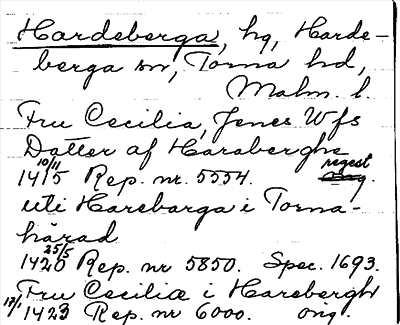 Hardeberga, hg, Harde-
berga sn, Torna hd,
Malm. l.
Fru Cecilia, Jenes Wfs
Datter af Harabergha
10/11 1415 Rep. nr. 5554. regest
uti Harebarga i Torna-
härad
25/5 1420 Rep. nr 5850. Spec. 1693.
Fru Ceciliæ i Harebergh
17/1 1423 Rep. nr 6000. orig.